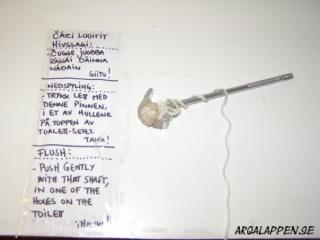 ČÁZI LUOITIT
HIVSSAGI:
ČUGGE JUOBBA
RÁIGÁI DÁINNA
NÁĐAIN
GIITU!
NEDSPYLING:
- TRYKK LETT MED
DENNE PINNEN,
I ET AV HULLENE
PÅ TOPPEN AV
TOALETT-SETET.
TAKK!
FLUSH:
- PUSH GENTLY
WITH THAT SHAFT,
IN ONE OF THE
HOLES ON THE
TOILETT
ARGALAPPEN.SE